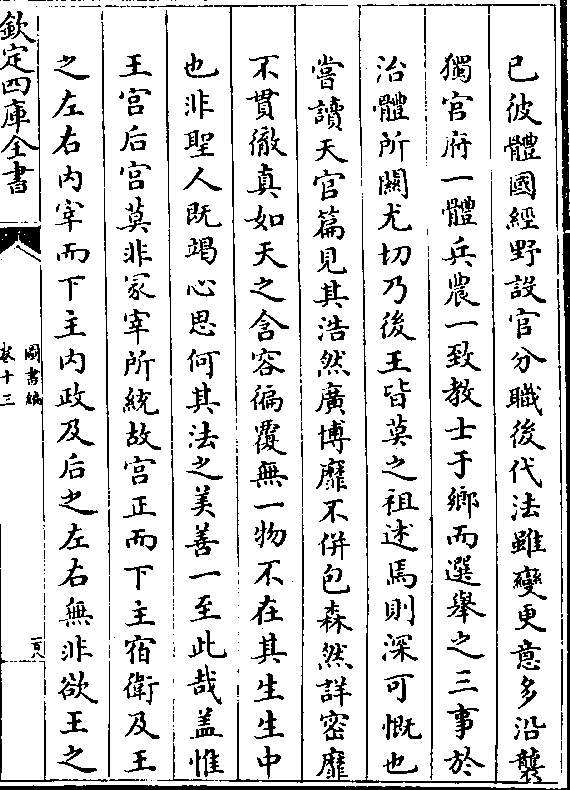 已彼體國經野設官分職後代法雖變更意多沿襲
獨官府一體兵農一致教士于鄉而選舉之三事於
治體所關尤切乃後王皆莫之祖述焉則深可慨也
嘗讀天官篇見其浩然廣博靡不併包森然詳密靡
不貫徹真如天之含容徧覆無一物不在其生生中
也非聖人既竭心思何其法之美善一至此哉盖惟
王宫后宫莫非冢宰所統故宫正而下主宿衛及王
之左右内宰而下主内政及后之左右無非欲王之
欽定四庫全書
圖書編
卷十三